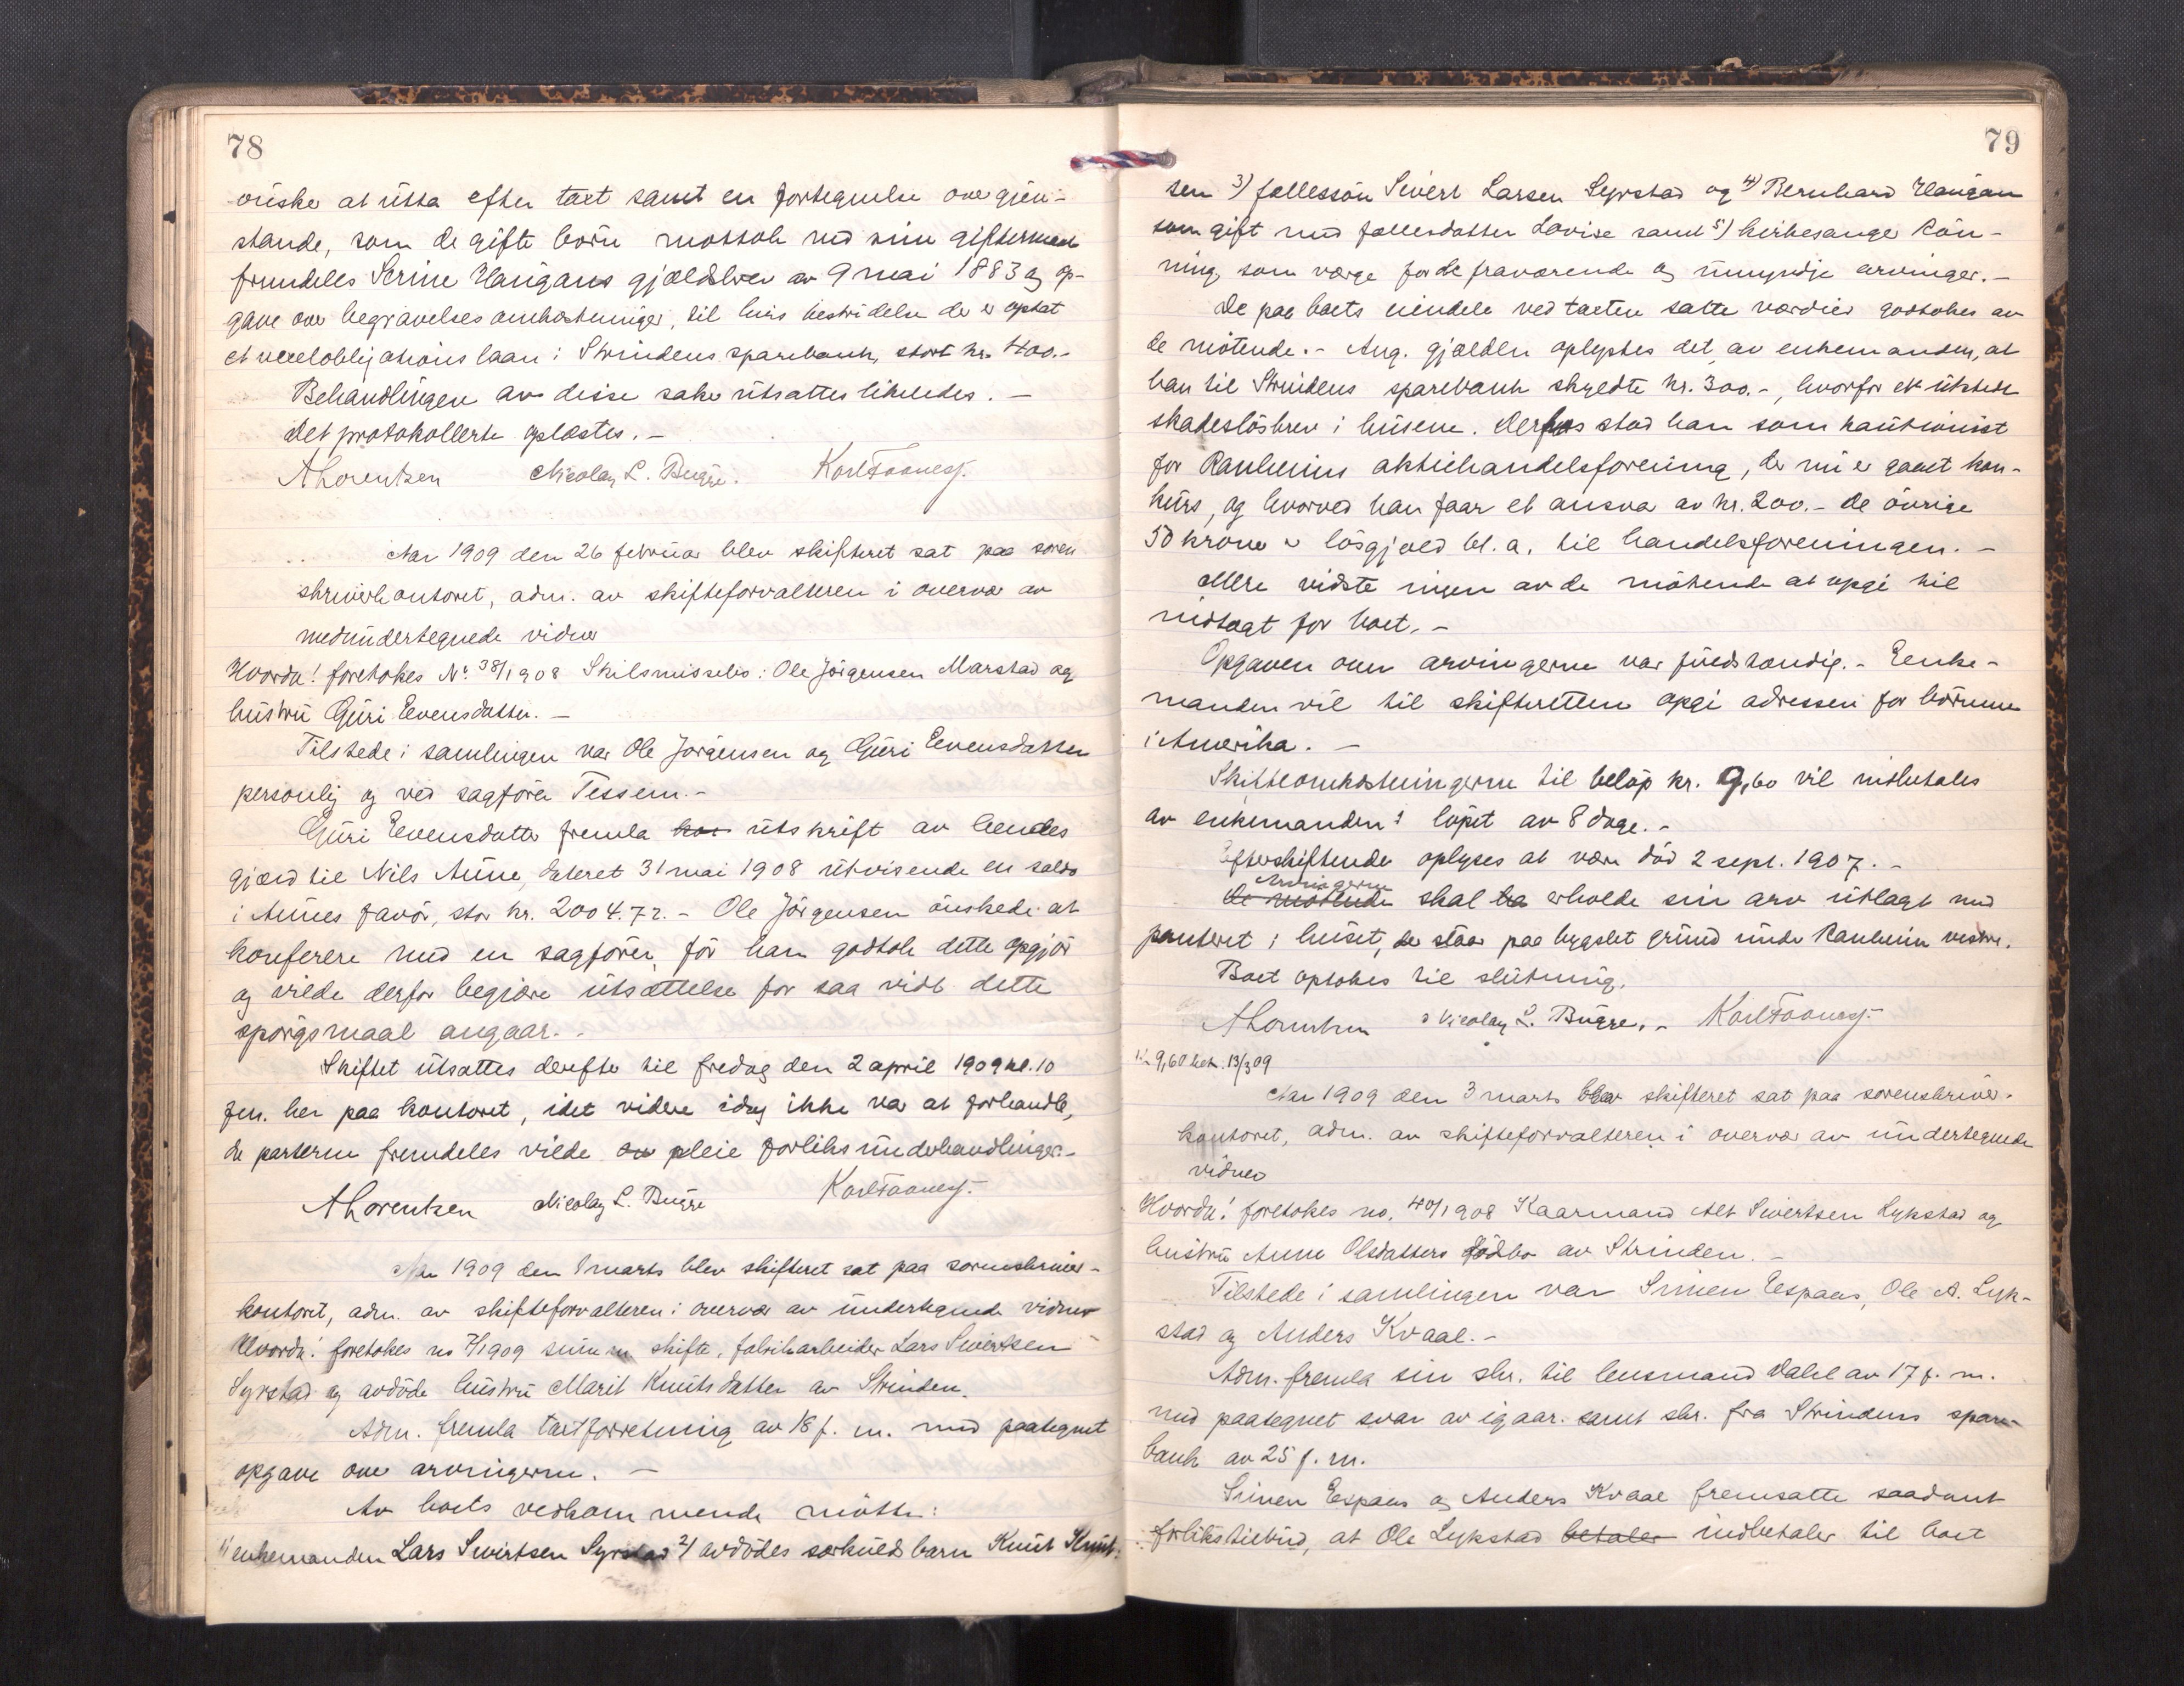 78
ønske at utta efter taxt samt en fortegnelse over gjen-
stande, som de gifte børn mottok ved sine giftermaal
fremdeles Serine Haugans gjældsbrev av 9 mai 1883 og op-
gave over begravelsesomkostninger, til hvis bestridelse der er optat
et vexelobligationslaan i Strindens sparebank, stort kr. 400.-
Behandlingen av disse saker utsattes likeledes. -
Det protokollerte oplæstes. -
A Lorentzen Nicolay L. Bugge. Karl Foonesz.
Aar 1909 den 26 februar blev skifteret sat paa soren
skriverkontoret, adm. av skifteforvalteren i overvær av
medundertegnede vidner
Hvorda! foretokes No 38/1908 Skilsmissebo: Ole Jørgensen Marstad og
hustru Guri Eevensdatter. -
Tilstede i samlingen var Ole Jørgensen og Guri Eevensdatter
personlig og ved sagfører Tessem. -
Guri Eevensdatter fremla utskrift av hendes
gjæld til Nils Aune, dateret 31 mai 1908 utvisende en saldo
i Aunes favør, stor kr. 2004.72. - Ole Jørgensen ønskede at
konferere med en sagfører, før han godtok dette opgjør
og vilde derfor begjære utsættelse for saa vidt dette
spørgsmaal angaar. -
Skiftet utsattes derefter til fredag den 2 april 1909 kl. 10
fm. her paa kontoret, idet videre idag ikke var at forhandle,
da parterne fremdeles vilde pleie forliksunderhandlinger. -
A Lorentzen Nicolay L. Bugge Karl Foonesz.
Aar 1909 den 1 marts blev skifteret sat paa sorenskriver-
kontoret, adm. av skifteforvalteren i overvær av undertegnede vidner
Hvorda! foretokes no 7/1909 summ. skifte, fabrikarbeider Lars Sivertsen
Syrstad og avdøde hustru Marit Knutsdatter av Strinden.
Adm. fremla taxtforretning av 18 f. m. med paategnet
opgave over arvingerne. -
Av boets vedkommende møtte:
1) enkemanden Lars Sivertsen Syrstad 2) avdødes særkuldsbarn Knut Knut-
79
sen 3) fællessøn Sivert Larsen Syrstad og 4) Bernhard Haugan
som gift med fællesdatter Lovise samt 5) kirkesanger Røn-
ning, som værge for de fraværende og umyndige arvinger. -
De paa boets eiendele ved taxten satte værdier godtokes av
de møtende. - Ang. gjælden oplystes det av enkemanden, at
han til Strindens sparebank skyldte kr. 300. -, hvorfor er utstedt
skadesløsbrev i husene. Derhos stod han som kautionist
for Ranheims aktiehandelsforening, der nu er gaaet kon-
kurs, og hvorved han faar et ansvar av kr. 200. - De øvrige
50 kroner er løsgjæld bl. a. til handelsforeningen. -
Mere vidste ingen av de møtende at opgi til
indtægt for boet. -
Opgaven over arvingerne var fuldstændig. - Eenke-
manden vil til skifteretten opgi adressen for børnene
i Amerika. -
Skifteomkostningerne til beløp kr. 9,60 vil indbetales
av enkemanden i løpet av 8 dage. -
Efterskiftende oplyses at være død 2 sept. 1907. -
Arvingerne
de møtende skal ta erholde sin arv utlagt med
panteret i huset, der staar paa bygslet grund under Ranheim vestre.
Boet optokes til slutning.
A Lorentzen Nicolay L. Bugge. - Karl Foonesz.
Kr 9,60 bet. 13/3 09
Aar 1909 den 3 marts blev skifteret sat paa sorenskriver-
kontoret, adm. av skifteforvalteren i overvær av undertegnede
vidner
Hvorda! foretokes no. 40/1908 Kaarmand Alt Sivertsen Lykstad og
hustru Anne Olsdatters dødsbo av Strinden. -
Tilstede i samlingen var Simen Eespaas, Ole A. Lyk-
stad og Anders Kvaal. -
Adm. fremla sin skr. til lensmand Dahl av 17 f. m.
med paategnet svar av igaar. samt skr. fra Strindens spare-
bank av 25 f. m.
Simen Eespaas og Anders Kvaal fremsatte saadant
forlikstilbud, at Ole Lykstad betaler indbetaler til boet